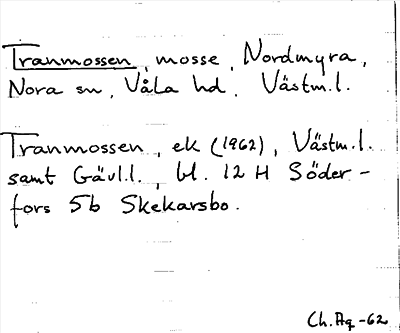 Tranmossen, mosse, Nordmyra,
Nora sn, Våla hd, Västm.l.
Tranmossen, ek (1962), Västm.l.
samt Gävl.l., bl. 12 H Söder-
fors 5b Skekarsbo.
Ch.Ag -62